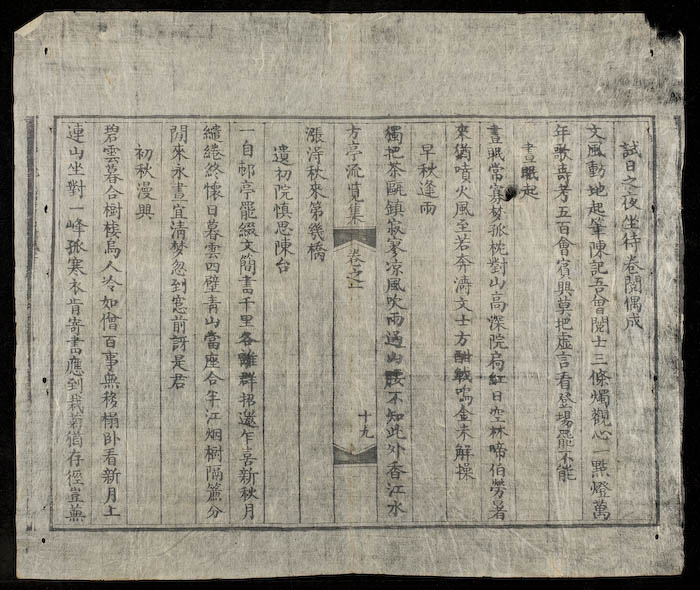 試日之夜坐待卷閱偶成
文風動地起筆陳記吾曾閱士三條燭觀心一點燈萬
年歌壽考五百會賓興莫把虛言看登場罷不能
晝眠起
晝眠常寡梦孤枕對山高深院扃紅日空林啼伯勞暑
來猶噴火風至若奔濤文士方酣戰鳴金未解操
早秋逢雨
獨把茶甌鎮寂寥凉風吹雨過山腰不知此外香江水
方亭流覽集 卷之一 十九
漲淂秋來第幾橋
遣初院慎思陳台
一自邮亭罷綴文簡書千里各離群招邀乍喜新秋月
繾綣終懷日暮雲四壁青山當座合半江烟樹隔簾分
閒來永晝宜清梦忽到窓前訝是君
初秋漫興
碧雲暮合樹棲烏人冷如僧百事無移榻卧看新月上
連山坐對一峰孤寒衣肯寄書應到栽菊猶存徑豈蕪